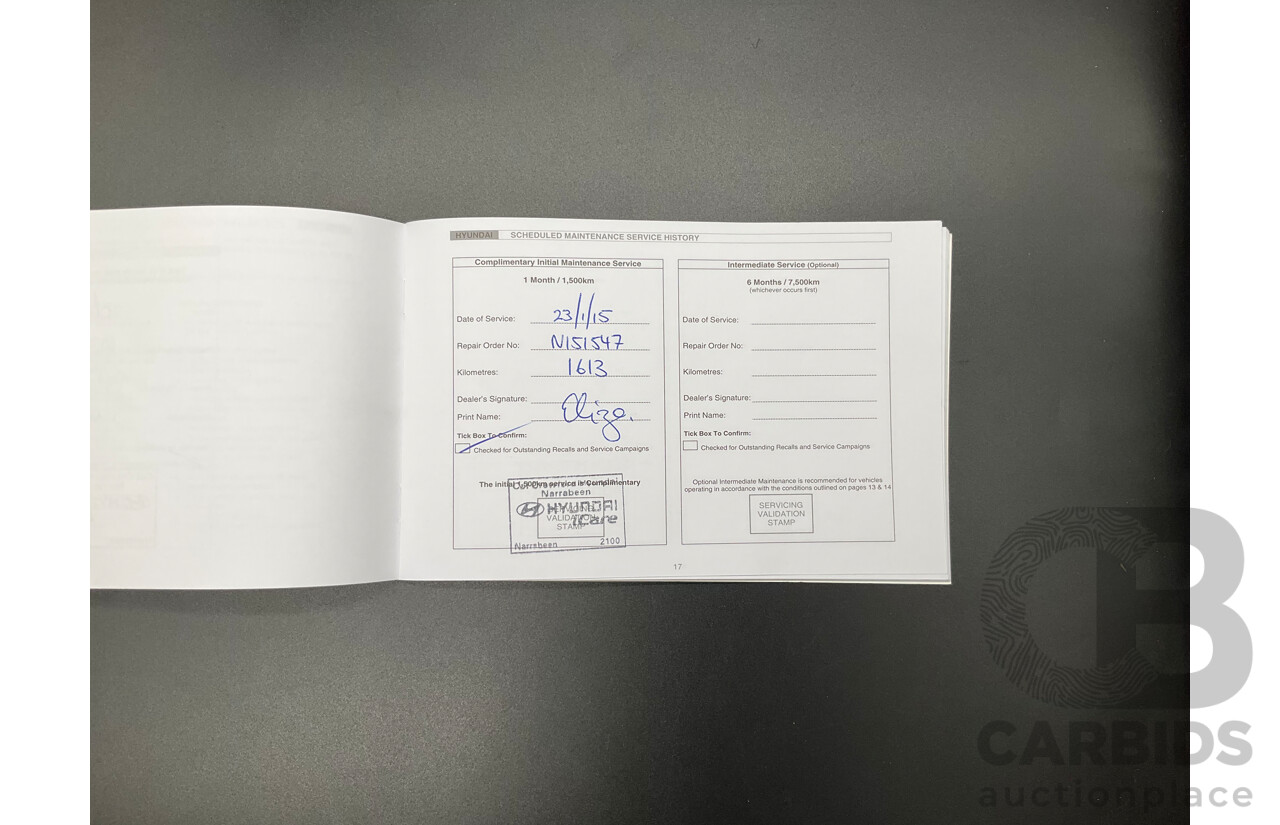 HYUNDAI SCHEDULED MAINTENANCE SERVICE HISTORY
Complimentary Initial Maintenance Service
1 Month / 1,500km
Date of Service: 23/1/15
Repair Order No: N151547
Kilometres: 1613
Dealer's Signature:
Print Name:
Tick Box To Confirm:
Checked for Outstanding Recalls and Service Campaigns
The initial 1,500km service is Complimentary
Narrabeen
HYUNDAI
iCare
SERVICING
VALIDATION
STAMP
Narrabeen 2100
Intermediate Service (Optional)
6 Months / 7,500km
(whichever occurs first)
Date of Service:
Repair Order No:
Kilometres:
Dealer's Signature:
Print Name:
Tick Box To Confirm:
Checked for Outstanding Recalls and Service Campaigns
Optional Intermediate Maintenance is recommended for vehicles
operating in accordance with the conditions outlined on pages 13 & 14
SERVICING
VALIDATION
STAMP
17
CB
CARBIDS
auctionplace